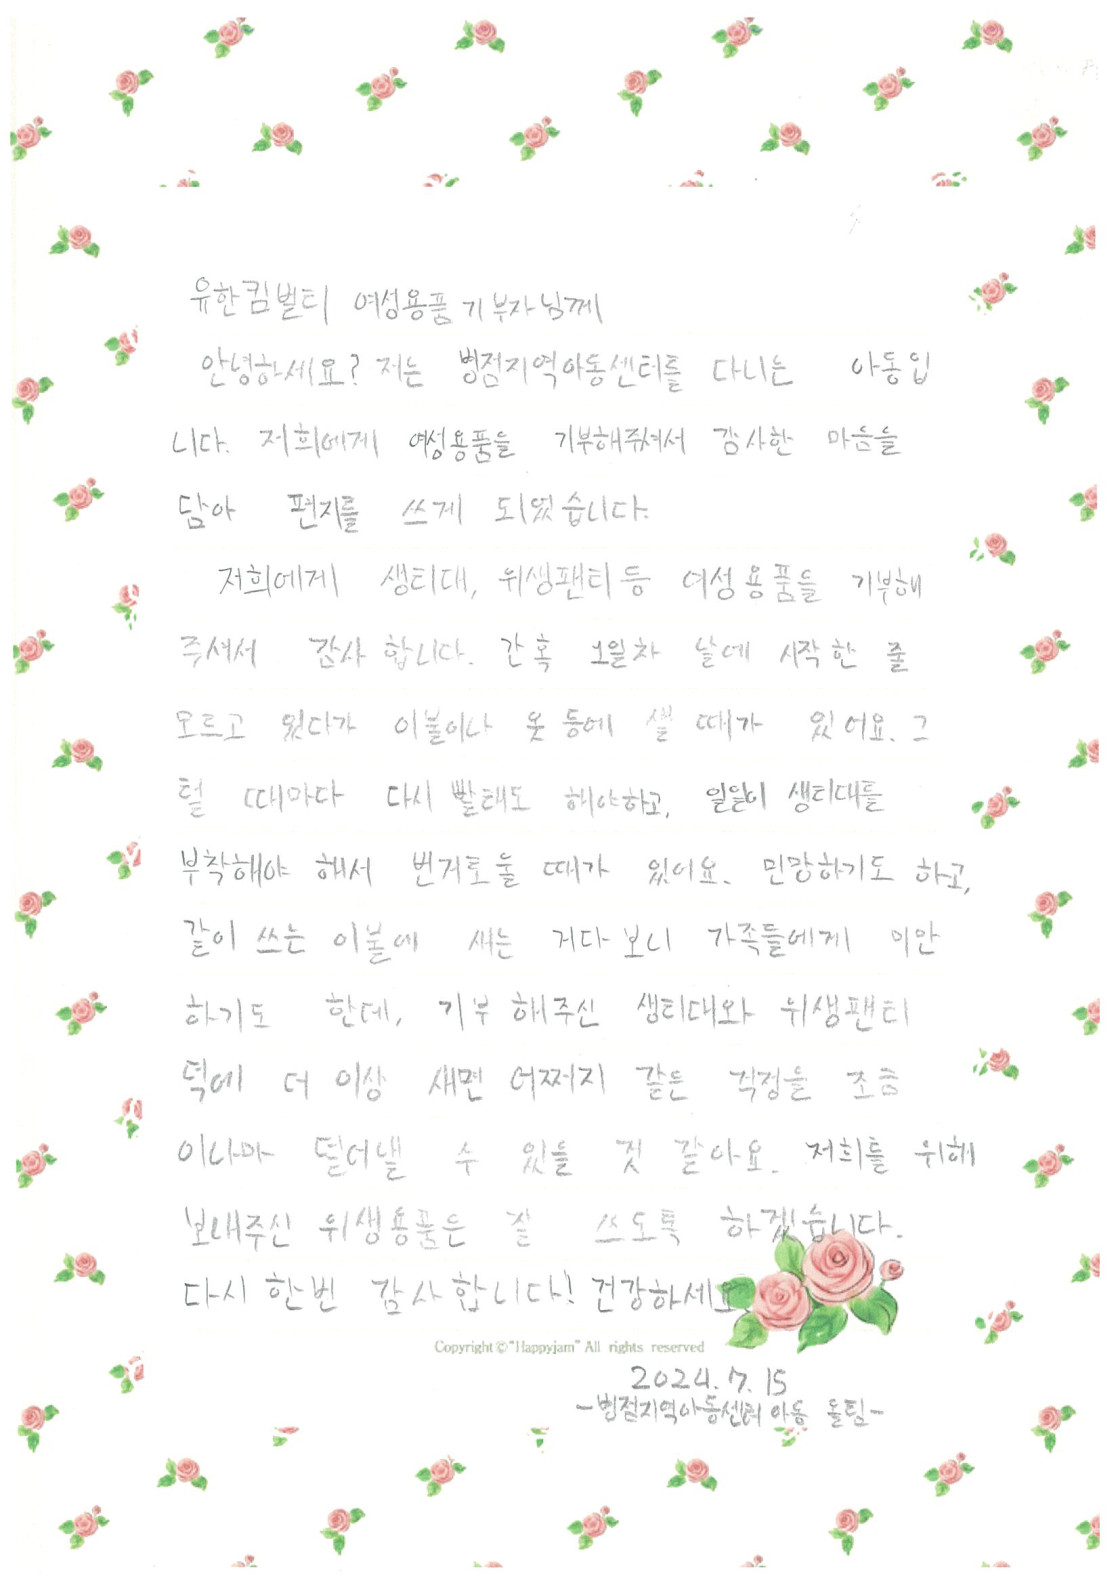 유한킴벌티 여성용품 기부자님께
안녕하세요? 저는 병점지역아동센터를 다니는 아동입
니다. 저희에게 여성용품을 기부해주셔서 감사한 마음을
담아 편지를 쓰게 되었습니다.
저희에게 생리대, 위생팬티 등 여성용품을 기부해
주셔서 감사합니다. 간혹 1일차 날에 시작한 줄
모르고 있다가 이불이나 옷 등에 샐 때가 있어요. 그
럴 때마다 다시 빨래도 해야하고, 일일이 생리대를
부착해야 해서 번거로울 때가 있어요. 민망하기도 하고,
같이 쓰는 이불에 새는 거다보니 가족들에게 미안
하기도 한데, 기부해주신 생리대와 위생팬티
덕에 더 이상 새면 어쩌지 같은 걱정을 조금
이나마 덜어낼 수 있을 것 같아요. 저희를 위해
보내주신 위생용품은 잘 쓰도록 하겠습니다.
다시 한번 감사합니다! 건강하세요
Copyright © "Happyjam" All rights reserved
2024. 7. 15
-병점지역아동센터 아동 올림-